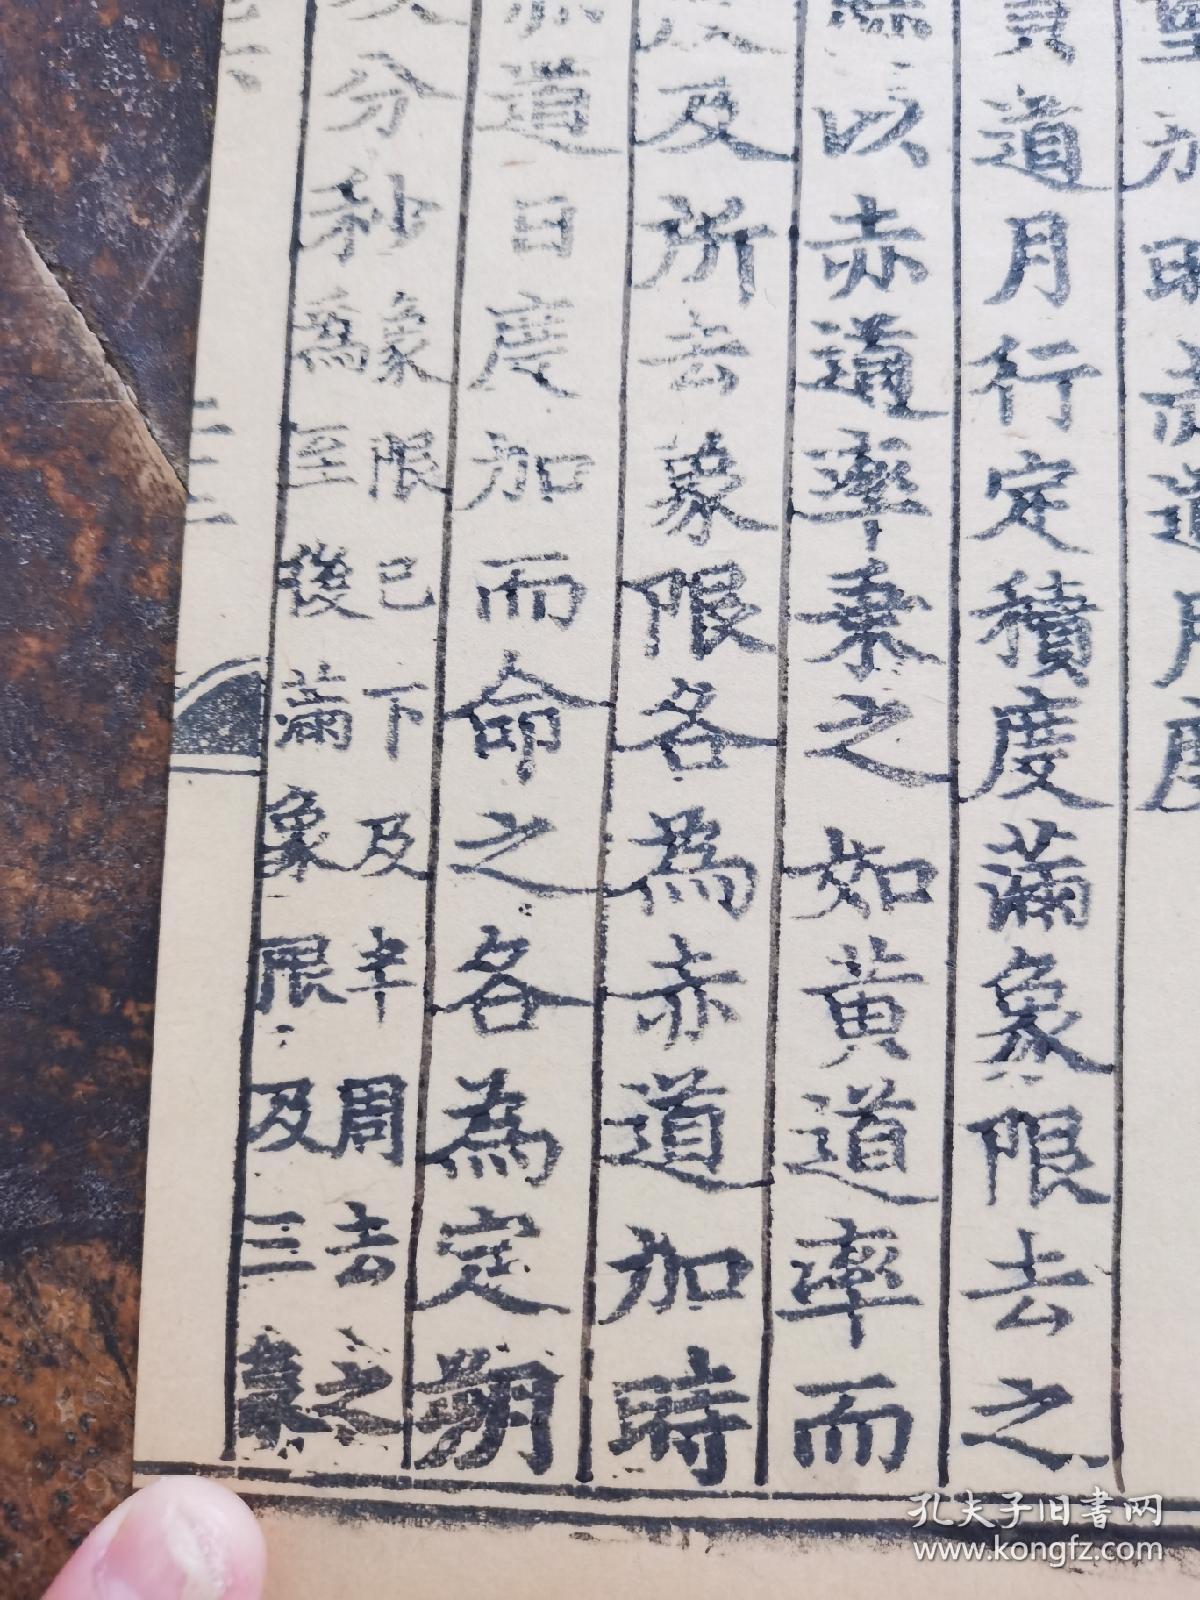 加時赤道月度
道月行定積度滿象限去之
以赤道率乘之如黃道率而
及所去象限各為赤道加時
道日度加而命之各為定朔
分秒象限已下及半周去之
為至後滿象限及三象
孔夫子旧书网
www.kongfz.com